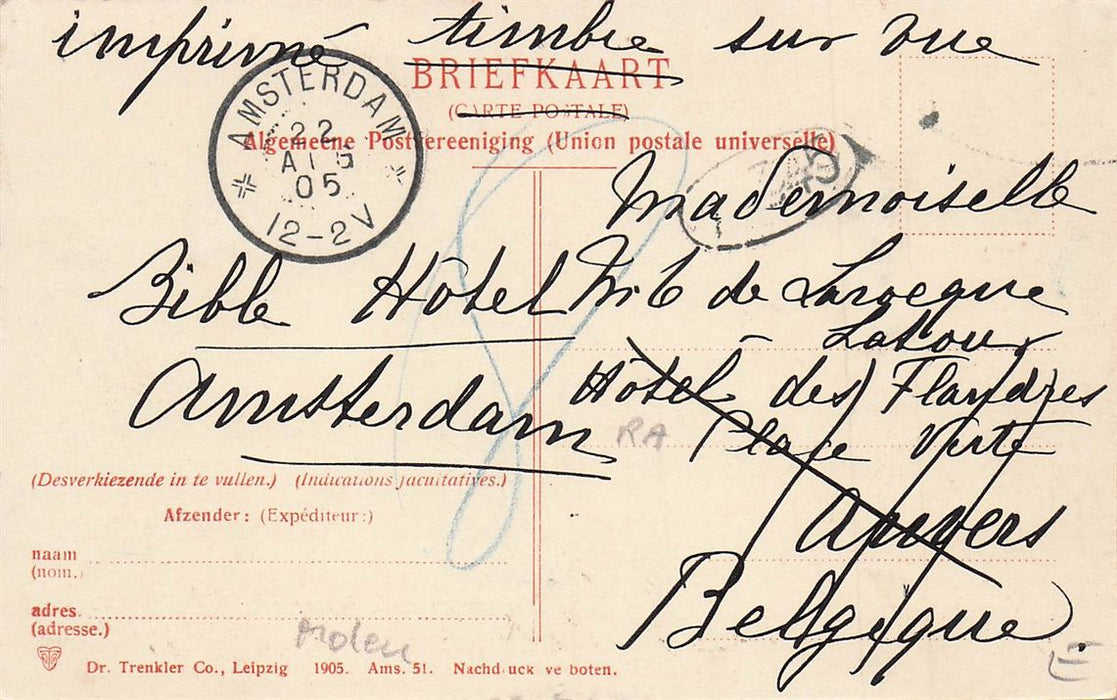 imprimé timbre sur vue
BRIEFKAART
(CARTE POSTALE)
Algemeene Postvereeniging (Union postale universelle)
AMSTERDAM
22
AUG
05
12-2V
Mademoiselle
de Larocque
Latour
Hôtel des Flandres
Place Verte
Anvers
Belgique
Bible Hôtel
Amsterdam
RA
(Desverkiezende in te vullen.) (Indications facultatives.)
Afzender: (Expéditeur:)
naam
(nom.)
adres.
(adresse.)
Molen
Dr. Trenkler Co., Leipzig 1905. Ams. 51. Nachdruck verboten.